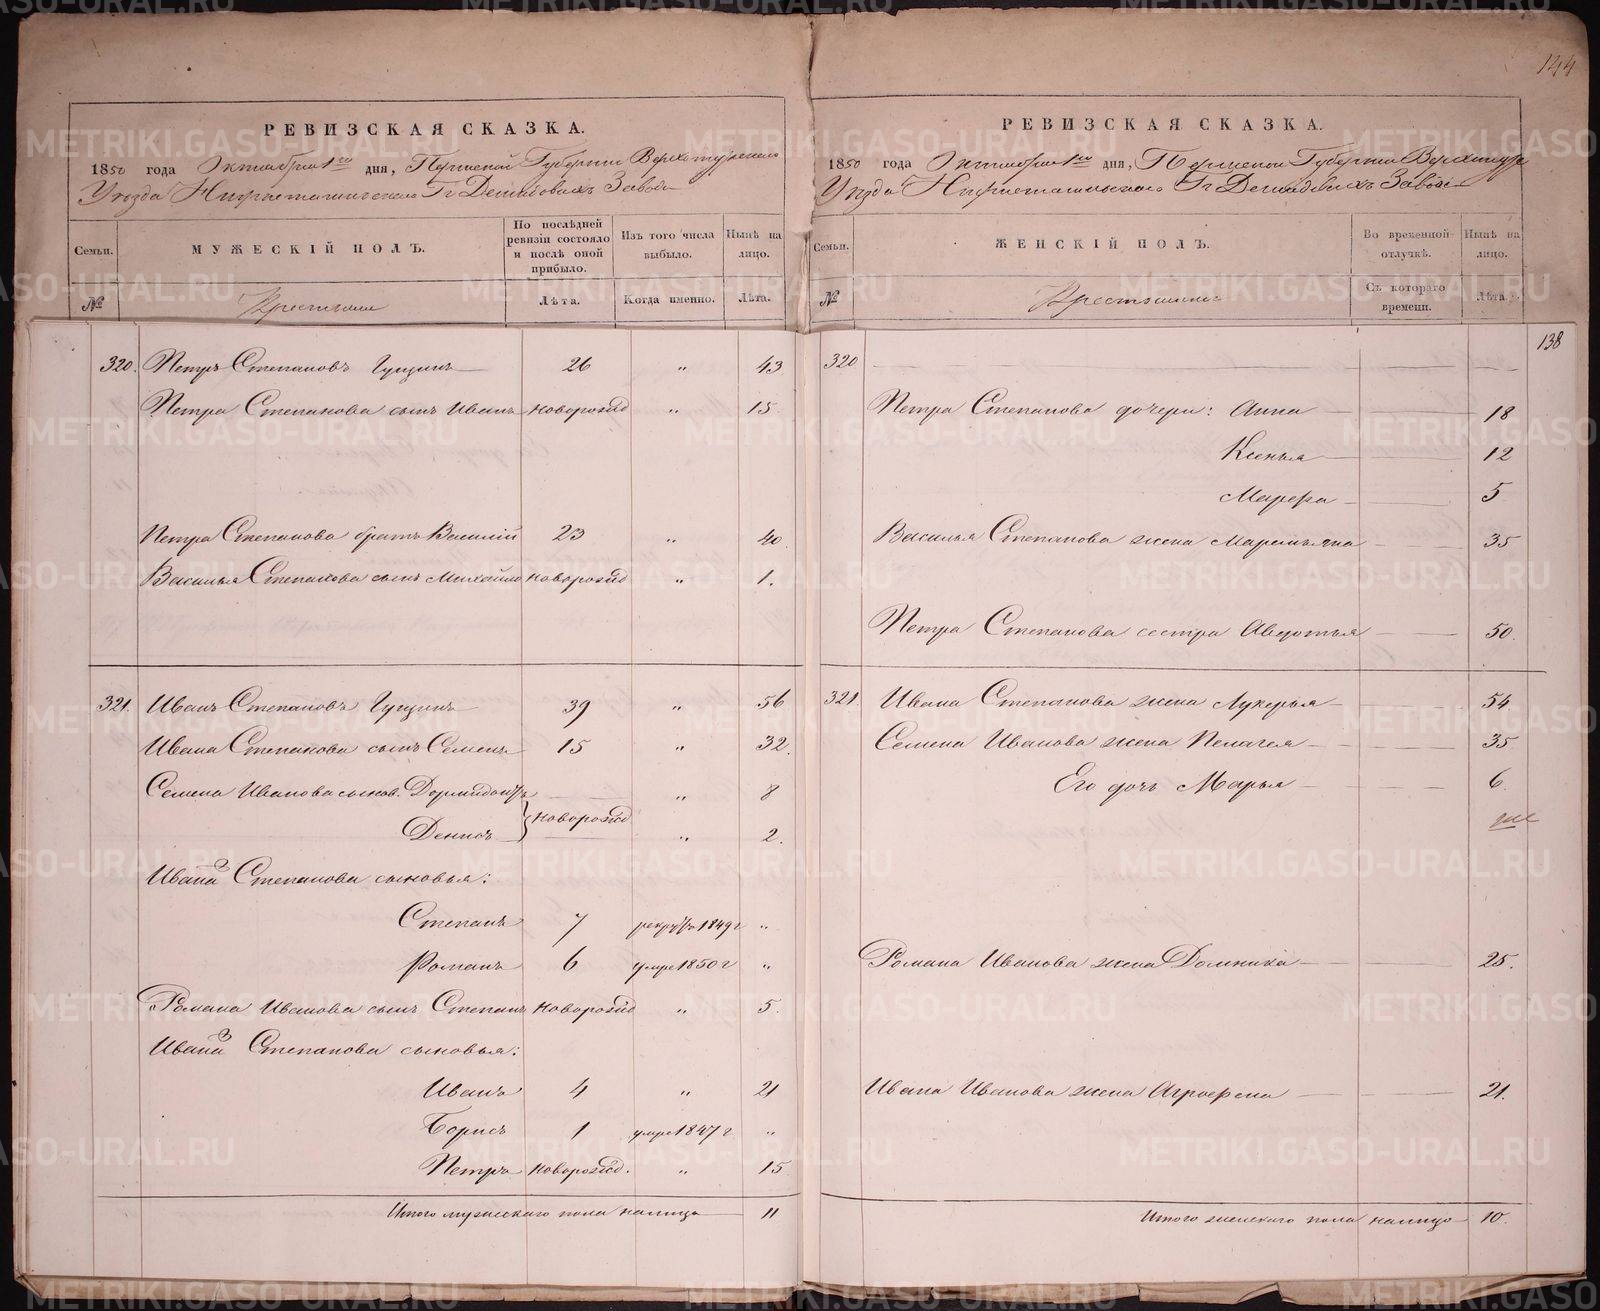 144
РЕВИЗСКАЯ СКАЗКА.
1850 года Октября 1го дня, Пермской Губернии Верхотурскаго
Уезда Нижнетагильскаго Гг Демидовыхъ Завода
Семьи. МУЖЕСКІЙ ПОЛЪ. По послѣдней ревизіи состояло и послѣ оной прибыло. Изъ того числа выбыло. Нынѣ на лицо.
№ Крестьяне Лѣта. Когда именно. Лѣта.
320. Петръ Степановъ Гущинъ 26 „ 43
Петра Степанова сынъ Иванъ новорожд „ 15
Петра Степанова братъ Василій 23 „ 40
Василья Степанова сынъ Михайло новорожд „ 1.
321. Иванъ Степановъ Гущинъ 39 „ 56
Ивана Степанова сынъ Семенъ 15 „ 32.
Семена Иванова сынов. Дормидонтъ „ 8
новорожд
Денисъ „ 2.
Ивана 3 Степанова сыновья:
Степанъ 7 рекрут 1849 г „
Романъ 6 умре 1850 г „
Романа Иванова сынъ Степанъ новорожд „ 5.
Ивана 3 Степанова сыновья:
Иванъ 4 „ 21
Борисъ 1 умре 1847 г „
Петръ новорожд. „ 15
Итого мужескаго пола налицо 11
РЕВИЗСКАЯ СКАЗКА.
1850 года Октября 1го дня, Пермской Губерніи Верхотур
Уезда Нижнетагильскаго Гг Демидовыхъ Завода
Семьи. ЖЕНСКІЙ ПОЛЪ. Во временной отлучкѣ. Нынѣ на лицо.
№ Крестьянки Съ котораго времени. Лѣта.
138
320
Петра Степанова дочери: Анна 18
Ксенья 12
Марфа 5
Василья Степанова жена Маремьяна 35
Петра Степанова сестра Авдотья 50.
321. Ивана Степанова жена Лукерья 54
Семена Иванова жена Пелагея 35
Его дочь Марья 6.
Романа Иванова жена Домника 25.
Ивана Иванова жена Аграфена 21.
Итого женскаго пола налицо 10.
METRIKI.GASO-URAL.RU